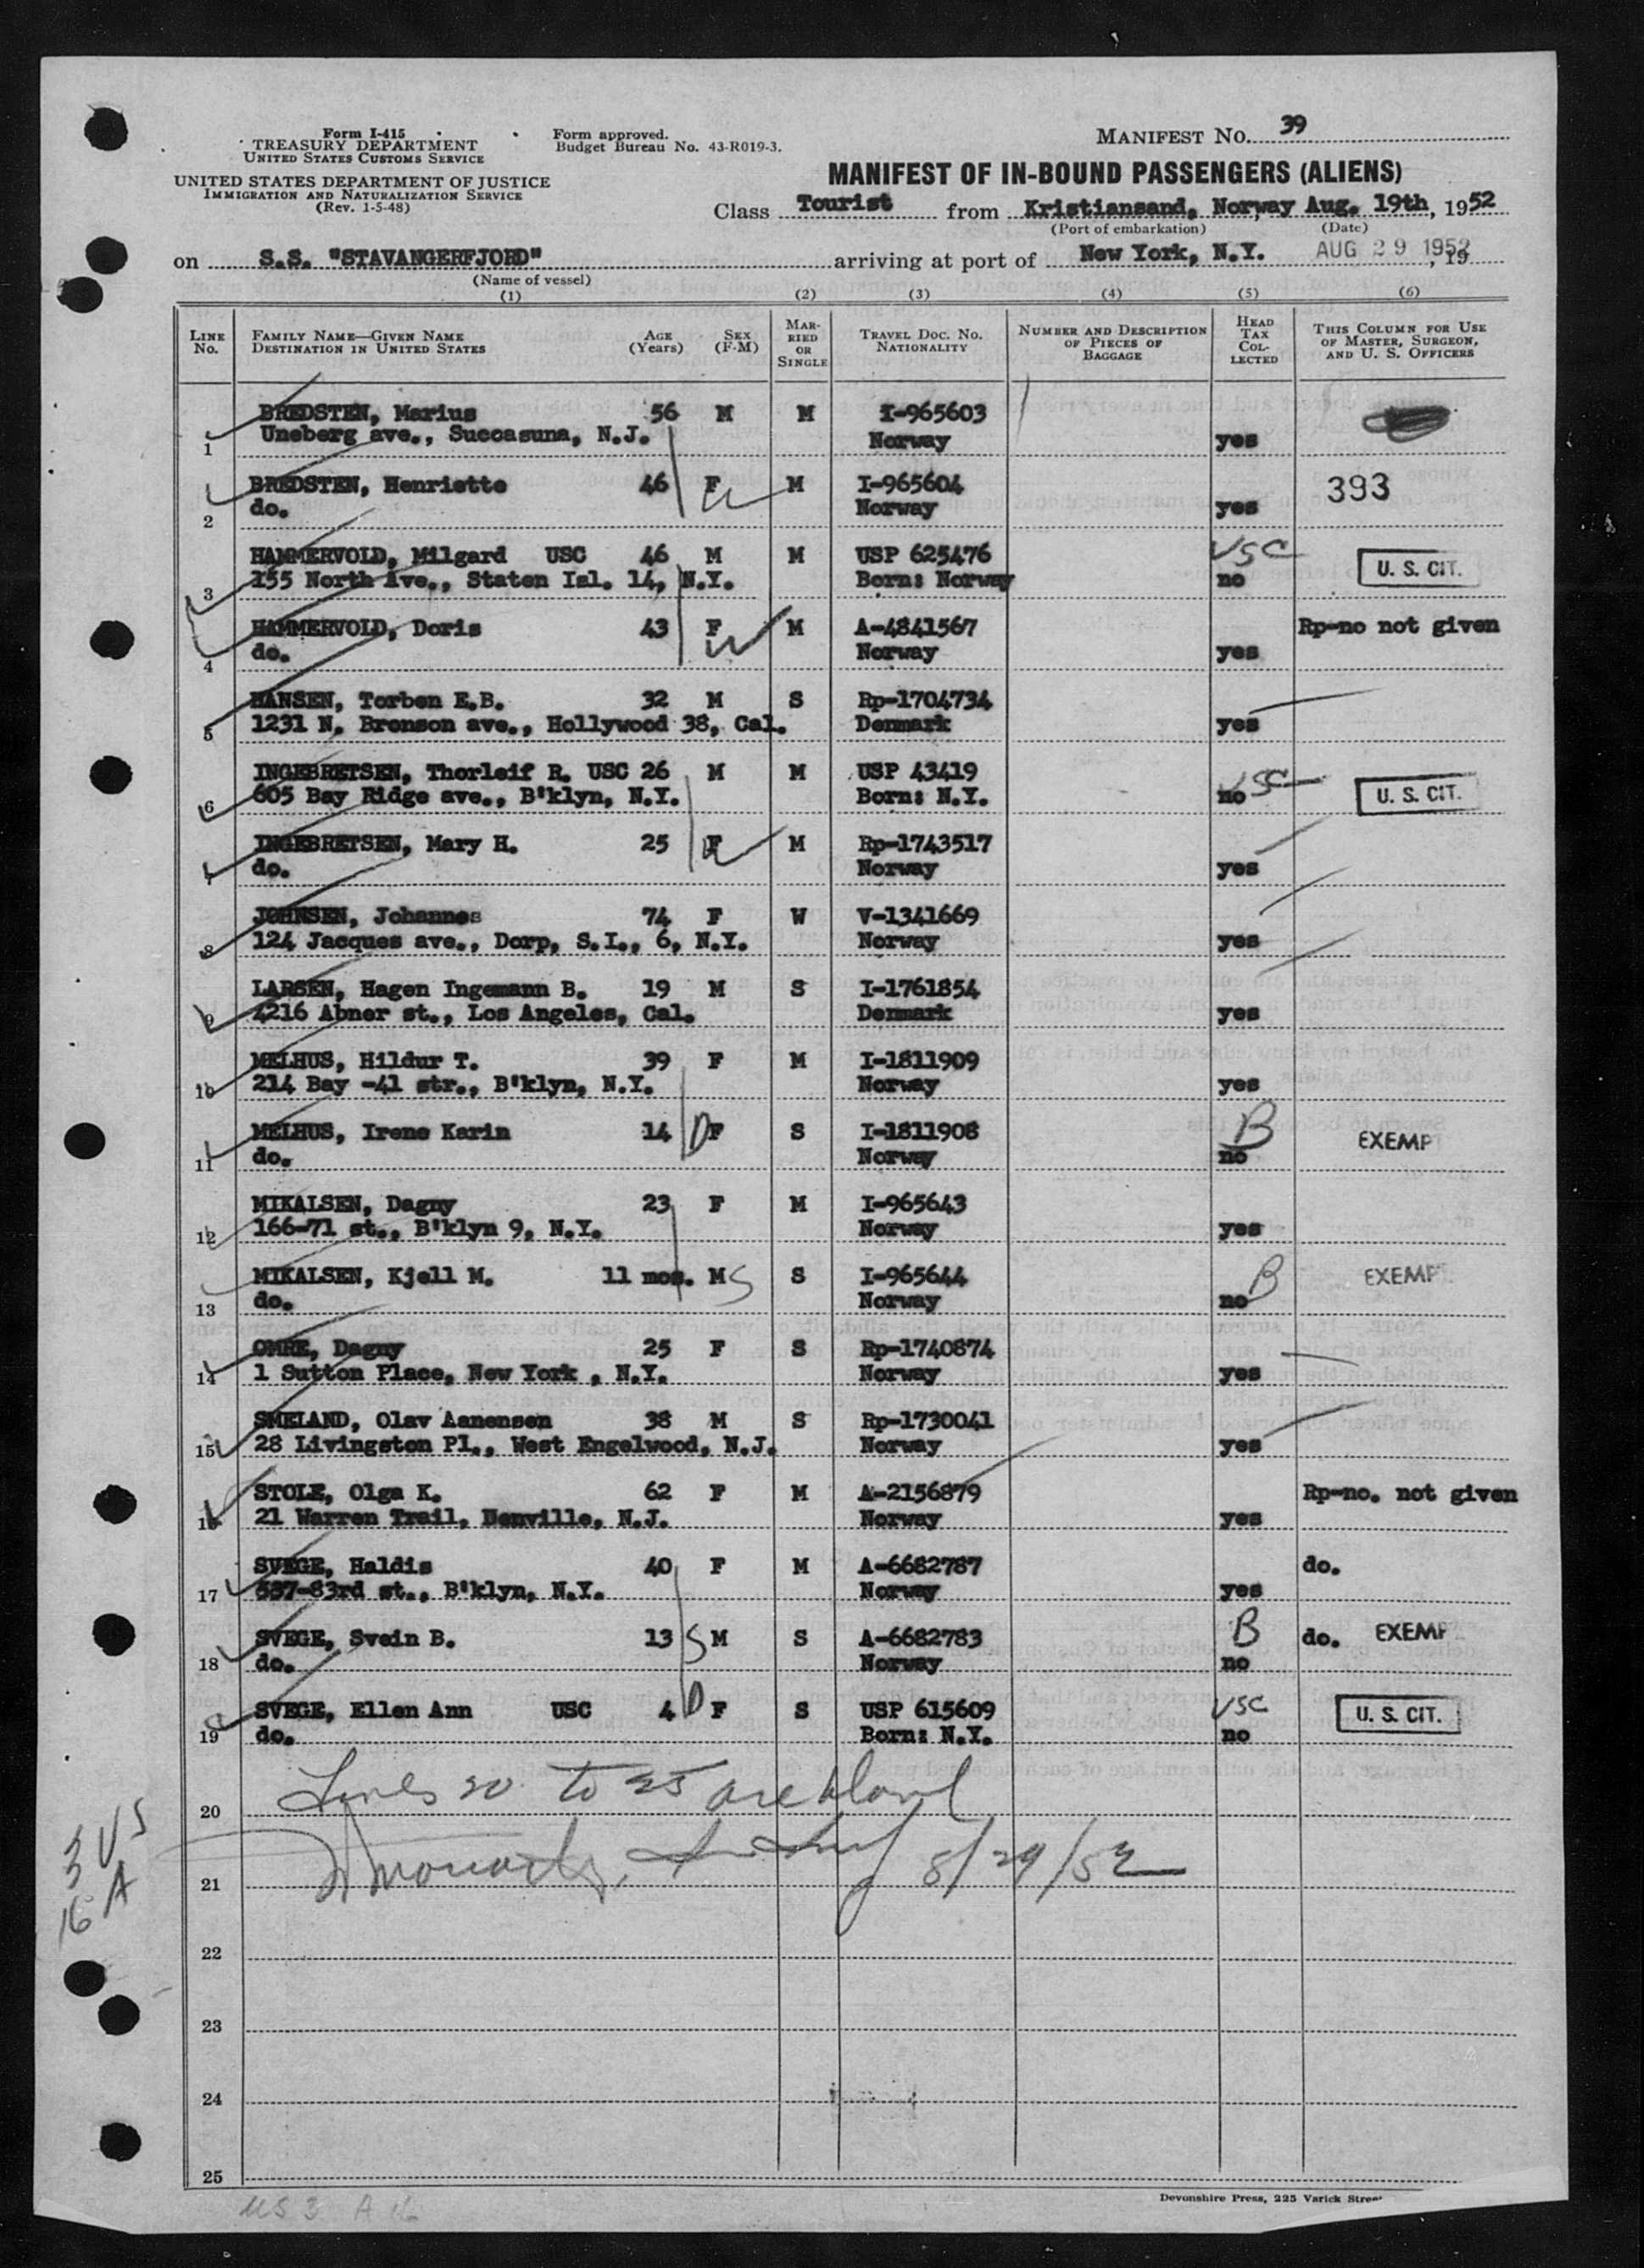 Form I-415
TREASURY DEPARTMENT
UNITED STATES CUSTOMS SERVICE
UNITED STATES DEPARTMENT OF JUSTICE
IMMIGRATION AND NATURALIZATION SERVICE
(Rev. 1-5-48)
Form approved.
Budget Bureau No. 43-R019-3.
MANIFEST No. 39
MANIFEST OF IN-BOUND PASSENGERS (ALIENS)
Class Tourist from Kristiansand, Norway Aug. 19th, 1952
(Port of embarkation) (Date)
on S.S. "STAVANGERFJORD" arriving at port of New York, N.Y. AUG 29 1952, 19
(Name of vessel)
(1) (2) (3) (4) (5) (6)
LINE No. FAMILY NAME—GIVEN NAME DESTINATION IN UNITED STATES AGE (Years) SEX (F-M) MARRIED OR SINGLE TRAVEL DOC. NO. NATIONALITY NUMBER AND DESCRIPTION OF PIECES OF BAGGAGE HEAD TAX COLLECTED THIS COLUMN FOR USE OF MASTER, SURGEON, AND U. S. OFFICERS
BREDSTEN, Marius 56 M M I-965603
1 Uneberg ave., Succasuna, N.J. Norway yes
BREDSTEN, Henriette 46 F W M I-965604 393
2 do. Norway yes
HAMMERVOLD, Milgard USC 46 M M USP 625476 USC U. S. CIT.
3 155 North Ave., Staten Isl. 14, N.Y. Born: Norway no
HAMMERVOLD, Doris 43 F W M A-4841567 Rp-no not given
4 do. Norway yes
HANSEN, Torben E.B. 32 M S Rp-1704734
5 1231 N. Bronson ave., Hollywood 38, Cal. Denmark yes
INGEBRETSEN, Thorleif R. USC 26 M M USP 43419 USC U. S. CIT.
6 605 Bay Ridge ave., B'klyn, N.Y. Born: N.Y. no
INGEBRETSEN, Mary H. 25 F W M Rp-1743517
7 do. Norway yes
JOHNSEN, Johannes 74 F W V-1341669
8 124 Jacques ave., Dorp, S.I., 6, N.Y. Norway yes
LARSEN, Hagen Ingemann B. 19 M S I-1761854
9 4216 Abner st., Los Angeles, Cal. Denmark yes
MELHUS, Hildur T. 39 F M I-1811909
10 214 Bay -41 str., B'klyn, N.Y. Norway yes
MELHUS, Irene Karin 14 D F S I-1811908 B EXEMP
11 do. Norway no
MIKALSEN, Dagny 23 F M I-965643
12 166-71 st., B'klyn 9, N.Y. Norway yes
MIKALSEN, Kjell M. 11 mos. M S S I-965644 B EXEMP
13 do. Norway no
OMRE, Dagny 25 F S Rp-1740874
14 1 Sutton Place, New York , N.Y. Norway yes
SMELAND, Olav Aanensen 38 M S Rp-1730041
15 28 Livingston Pl., West Engelwood, N.J. Norway yes
STOLE, Olga K. 62 F M A-2156879 Rp-no. not given
16 21 Warren Trail, Denville, N.J. Norway yes
SVEGE, Haldis 40 F M A-6682787 do.
17 537-83rd st., B'klyn, N.Y. Norway yes
SVEGE, Svein B. 13 S M S A-6682783 B do. EXEMP
18 do. Norway no
SVEGE, Ellen Ann USC 4 D F S USP 615609 USC U. S. CIT.
19 do. Born: N.Y. no
Lines 20 to 25 are blank
20
8/29/52
21
3 US
16 A
22
23
24
25
US 3 A 16
Devonshire Press, 225 Varick Street